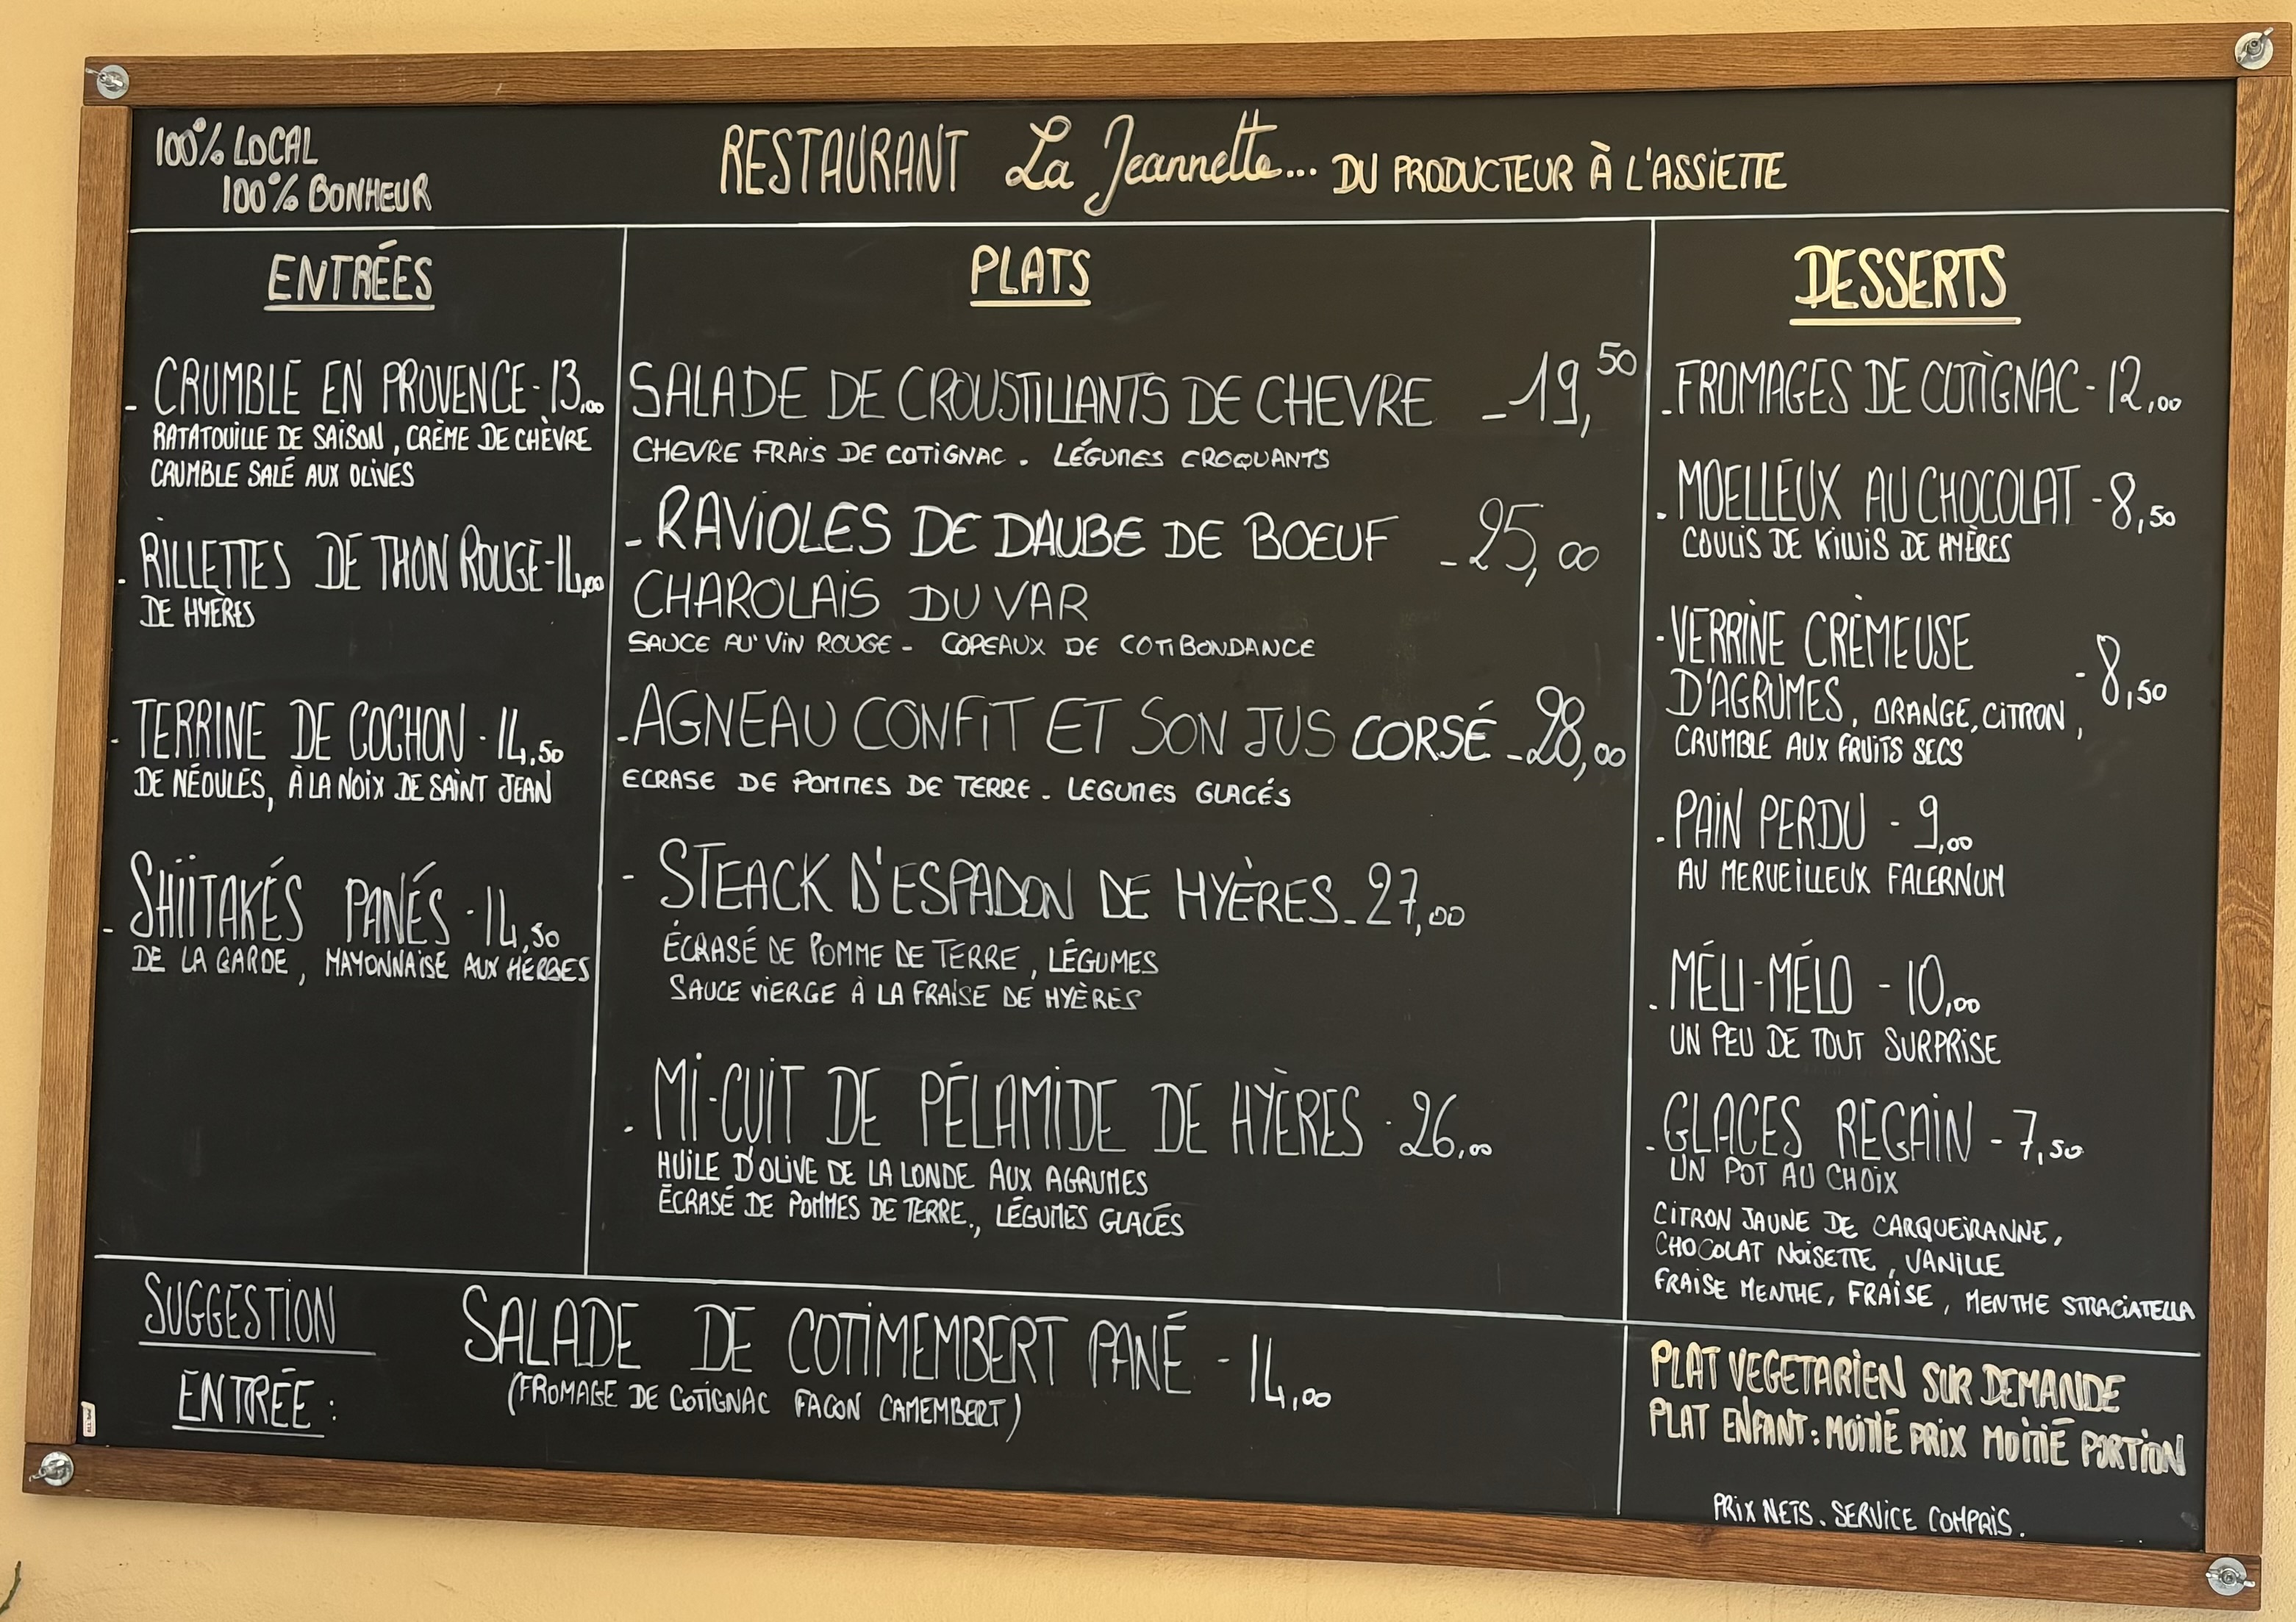 100% LOCAL
100% BONHEUR
RESTAURANT La Jeannette... DU PRODUCTEUR À L'ASSIETTE
ENTRÉES
- CRUMBLE EN PROVENCE - 13,00
RATATOUILLE DE SAISON, CRÈME DE CHÈVRE
CRUMBLE SALÉ AUX OLIVES
- RILLETTES DE THON ROUGE - 14,00
DE HYÈRES
- TERRINE DE COCHON - 14,50
DE NÉOULES, À LA NOIX DE SAINT JEAN
- SHIITAKÉS PANÉS - 14,50
DE LA GARDE, MAYONNAISE AUX HERBES
PLATS
SALADE DE CROUSTILLANTS DE CHEVRE - 19,50
CHEVRE FRAIS DE COTIGNAC - LÉGUMES CROQUANTS
- RAVIOLES DE DAUBE DE BOEUF - 25,00
CHAROLAIS DU VAR
SAUCE AU VIN ROUGE - COPEAUX DE COTIBONDANCE
- AGNEAU CONFIT ET SON JUS CORSÉ - 28,00
ECRASE DE POMMES DE TERRE - LEGUMES GLACÉS
- STEACK D'ESPADON DE HYÈRES - 27,00
ÉCRASÉ DE POMME DE TERRE, LÉGUMES
SAUCE VIERGE À LA FRAISE DE HYÈRES
- MI-CUIT DE PÉLAMIDE DE HYÈRES - 26,00
HUILE D'OLIVE DE LA LONDE AUX AGRUMES
ÉCRASÉ DE POMMES DE TERRE., LÉGUMES GLACÉS
DESSERTS
- FROMAGES DE COTIGNAC - 12,00
- MOELLEUX AU CHOCOLAT - 8,50
COULIS DE KIWIS DE HYÈRES
- VERRINE CRÈMEUSE
D'AGRUMES, ORANGE, CITRON, - 8,50
CRUMBLE AUX FRUITS SECS
- PAIN PERDU - 9,00
AU MERVEILLEUX FALERNUM
- MÉLI-MÉLO - 10,00
UN PEU DE TOUT SURPRISE
- GLACES REGAIN - 7,50
UN POT AU CHOIX
CITRON JAUNE DE CARQUEIRANNE,
CHOCOLAT NOISETTE, VANILLE
FRAISE MENTHE, FRAISE, MENTHE STRACIATELLA
SUGGESTION
ENTRÉE :
SALADE DE COTIMEMBERT PANÉ - 14,00
(FROMAGE DE COTIGNAC FACON CAMEMBERT)
PLAT VEGETARIEN SUR DEMANDE
PLAT ENFANT : MOITIÉ PRIX MOITIÉ PORTION
PRIX NETS. SERVICE COMPRIS.